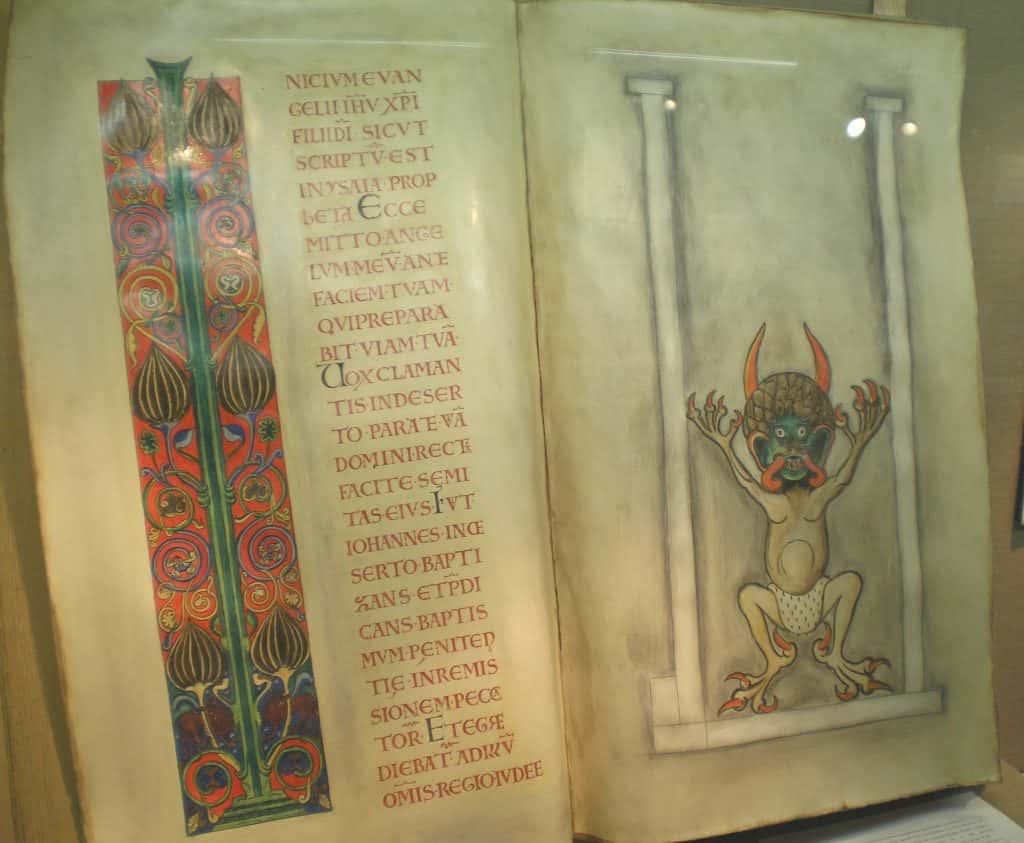 NICIVM EVAN
GELII IĤV XP̄I
FILII DĪ SICVT
SCRIPTV̄·EST
IN YSAIA PROP
hETA ECCE
MITTO·ANGE
LVM·MEV̄·ANTE
FACIEM·TVAM·
QVI PREPARA
BIT·VIAM·TVĀ·
VOX CLAMAN
TIS·IN DESER
TO·PARATE·VIĀ
DOMINI·RECTAS
FACITE·SEMI
TAS·EIVS·FVIT
IOHANNES·IN DE
SERTO·BAPTI
ZANS·ET P̄DI
CANS·BAPTIS
MVM·PENITEN
TIE·IN REMIS
SIONEM·PECCA
TOR· ET EGRE
DIEBAT·AD ILLV̄
OM̄IS·REGIO IVDEE